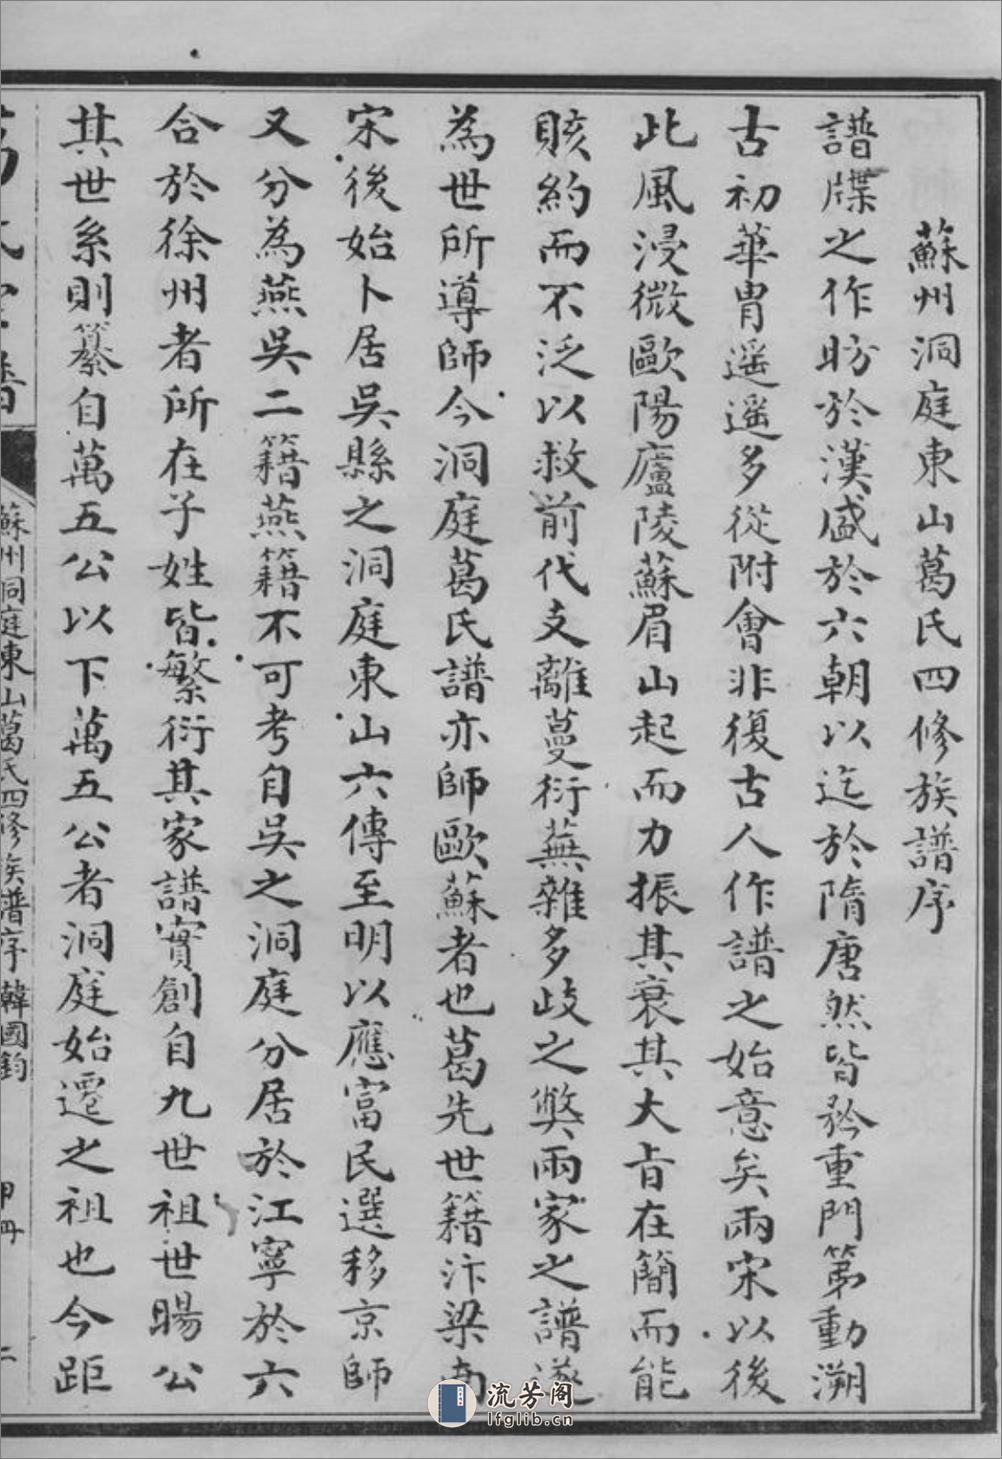 蘇州洞庭東山葛氏四修族譜序
譜牒之作昉於漢盛於六朝以迄於隋唐然皆矜重門第動溯
古初華胄遥遥多從附會非復古人作譜之始意矣兩宋以後
此風浸微歐陽廬陵蘇眉山起而力振其衰其大肯在簡而能
賅約而不泛以救前代支離蔓衍蕪雜多歧之獘兩家之譜遂
為世所導師今洞庭葛氏譜亦師歐蘇者也葛先世籍汴梁南
宋後始卜居吳縣之洞庭東山六傳至明以應富民選移京師
又分為燕吳二籍燕籍不可考自吳之洞庭分居於江寧於六
合於徐州者所在子姓皆繁衍其家譜實創自九世祖世暘公
其世系則纂自萬五公以下萬五公者洞庭始遷之祖也今距
葛氏宗譜
蘇州洞庭東山葛氏四修族譜序 韓國鈞
甲冊
二
流芳阁
lfglib.cn